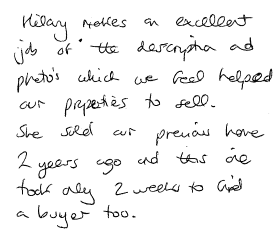 Hilary makes an excellent
job of the description and
photo's which we feel helped
our properties to sell.
She sold our previous home
2 years ago and this one
took only 2 weeks to find
a buyer too.